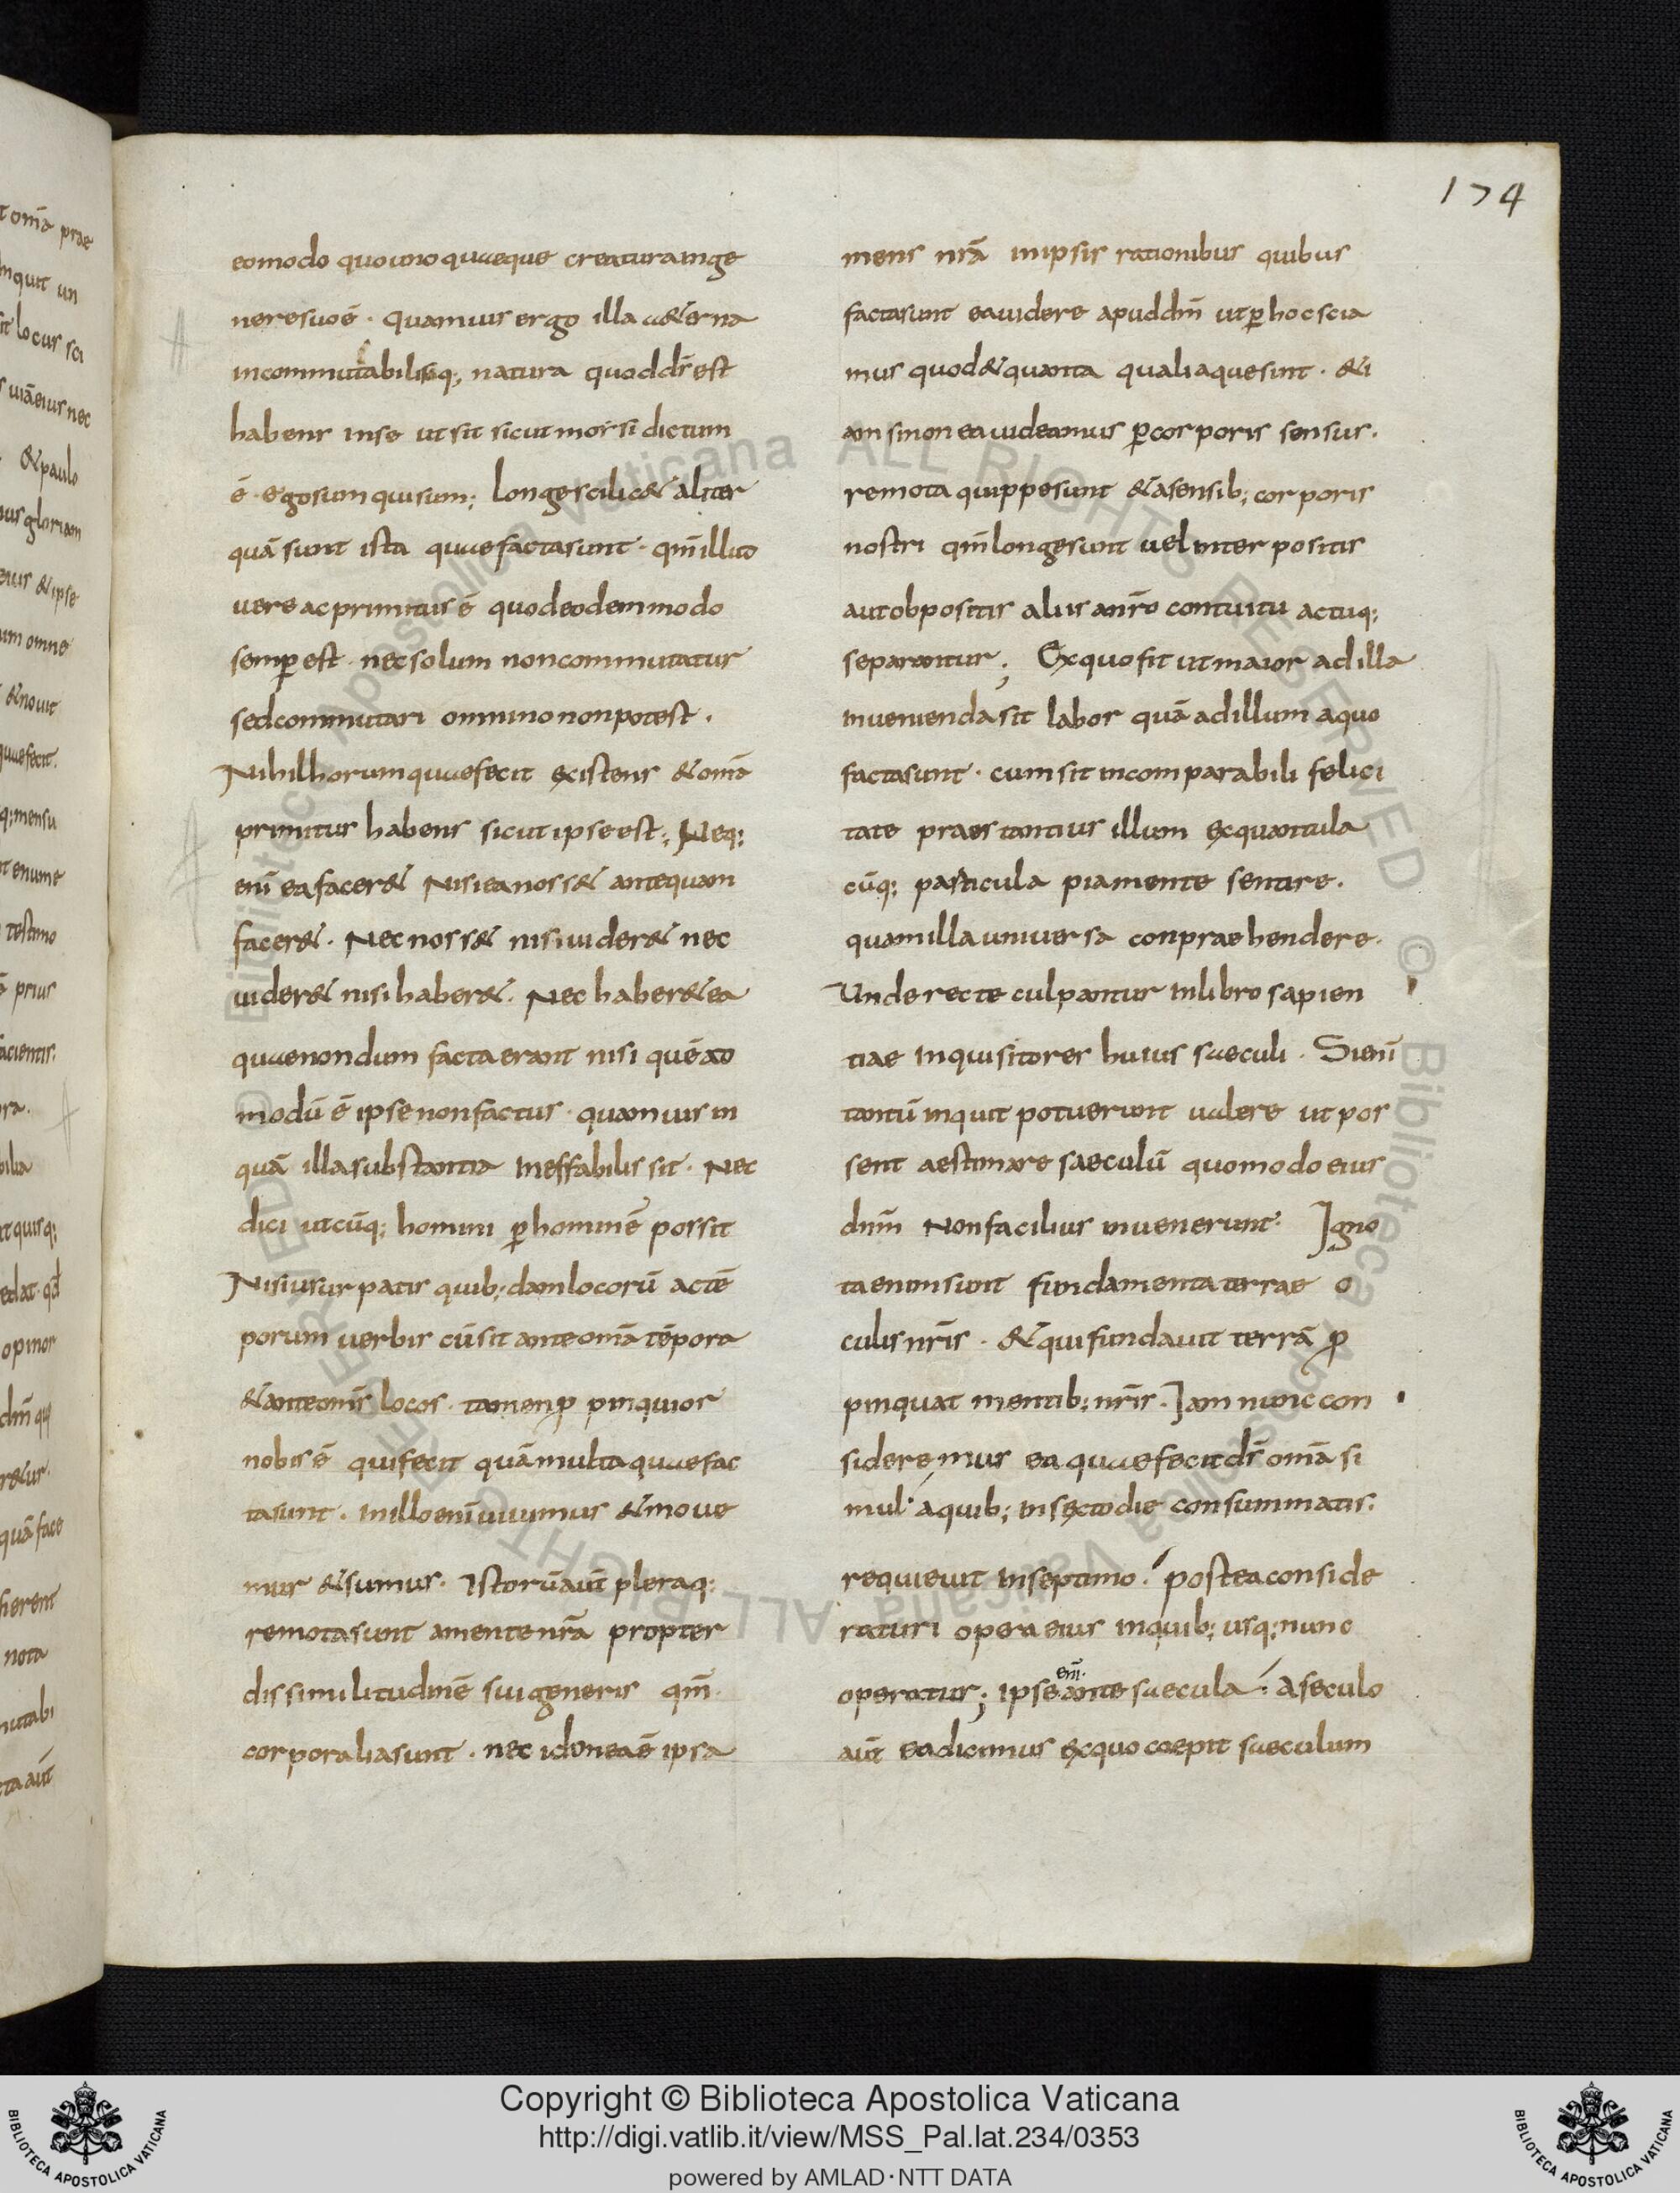 174
eomodo quouno quaeque creatura inge
nere suo ē · quamuis ergo illa aeterna
incommutabilisq; natura quod d̄s est
habens inse ut sit sicut moysi dictum
ē · ego sum qui sum; longe scilic& aliter
quā sunt ista quae facta sunt · qm̄ illud
uere ac primitus ē quod eodem modo
semp̄ est · nec solum non commutatur
sed commutari omnino non potest ·
Nihil horum quae fecit existens & om̄a
primitus habens sicut ipse est; Neq;
eni̅ ea facer& Nisi ea noss& antequam
facer& · Nec noss& nisi uider& nec
uider& nisi haber& · Nec haber& ea
quae nondum facta erant nisi quēad
modū ē ipse non factus · quamuis in
quā illa substantia ineffabilis sit · Nec
dici utcūq; homini p̄ hominē possit
Nisi usurpatis quib;dam locorū ac tē
porum uerbis cū sit ante om̄a tēpora
& ante om̄s locos · tamen p̄pinquior
nobis ē qui fecit quā multa quae fac
ta sunt · in illo eni̅ uiuimus & moue
mur & sumus · Istorū aūt pleraq;
remota sunt a mente nr̄a propter
dissimilitudinē sui generis qm̄
corporalia sunt · nec idonea ē ipsa
mens nr̄a in ipsis rationibus quibus
facta sunt ea uidere apud dm̄ ut p̄ hoc scia
mus quod & quanta qualiaque sint · &i
am si non ea uideamus p̄ corporis sensus ·
remota quippe sunt & a sensib; corporis
nostri qm̄ longe sunt uel interpositis
aut obpositis aliis a nr̄o contuitu actuq;
separantur; Ex quo fit ut maior ad illa
inuenienda sit labor quā ad illum a quo
facta sunt · cum sit incomparabili felici
tate praestantius illum ex quantula
cūq; particula pia mente sentire ·
quam illa uniuersa conpraehendere ·
Unde recte culpantur in libro sapien
tiae inquisitores huius saeculi · Si eni̅
tantū inquit potuerunt ualere ut pos
sent aestimare saeculū quomodo eius
dnm̄ Non facilius inuenerunt · Igno
ta enim sunt fundamenta terrae o
culis nr̄is · & qui fundauit terrā p̄
pinquat mentib; nr̄is · Iam nunc con
sideremus ea quae fecit d̄s om̄a si
mul · a quib; in sexto die consummatis ·
requieuit in septimo · postea conside
raturi opera eius in quib; usq; nunc
operatur; ipse eni̅ ante saecula · A seculo
aūt ea dicimus ex quo coepit saeculum
Copyright © Biblioteca Apostolica Vaticana
http://digi.vatlib.it/view/MSS_Pal.lat.234/0353
powered by AMLAD·NTT DATA
BIBLIOTECA APOSTOLICA VATICANA
BIBLIOTECA APOSTOLICA VATICANA